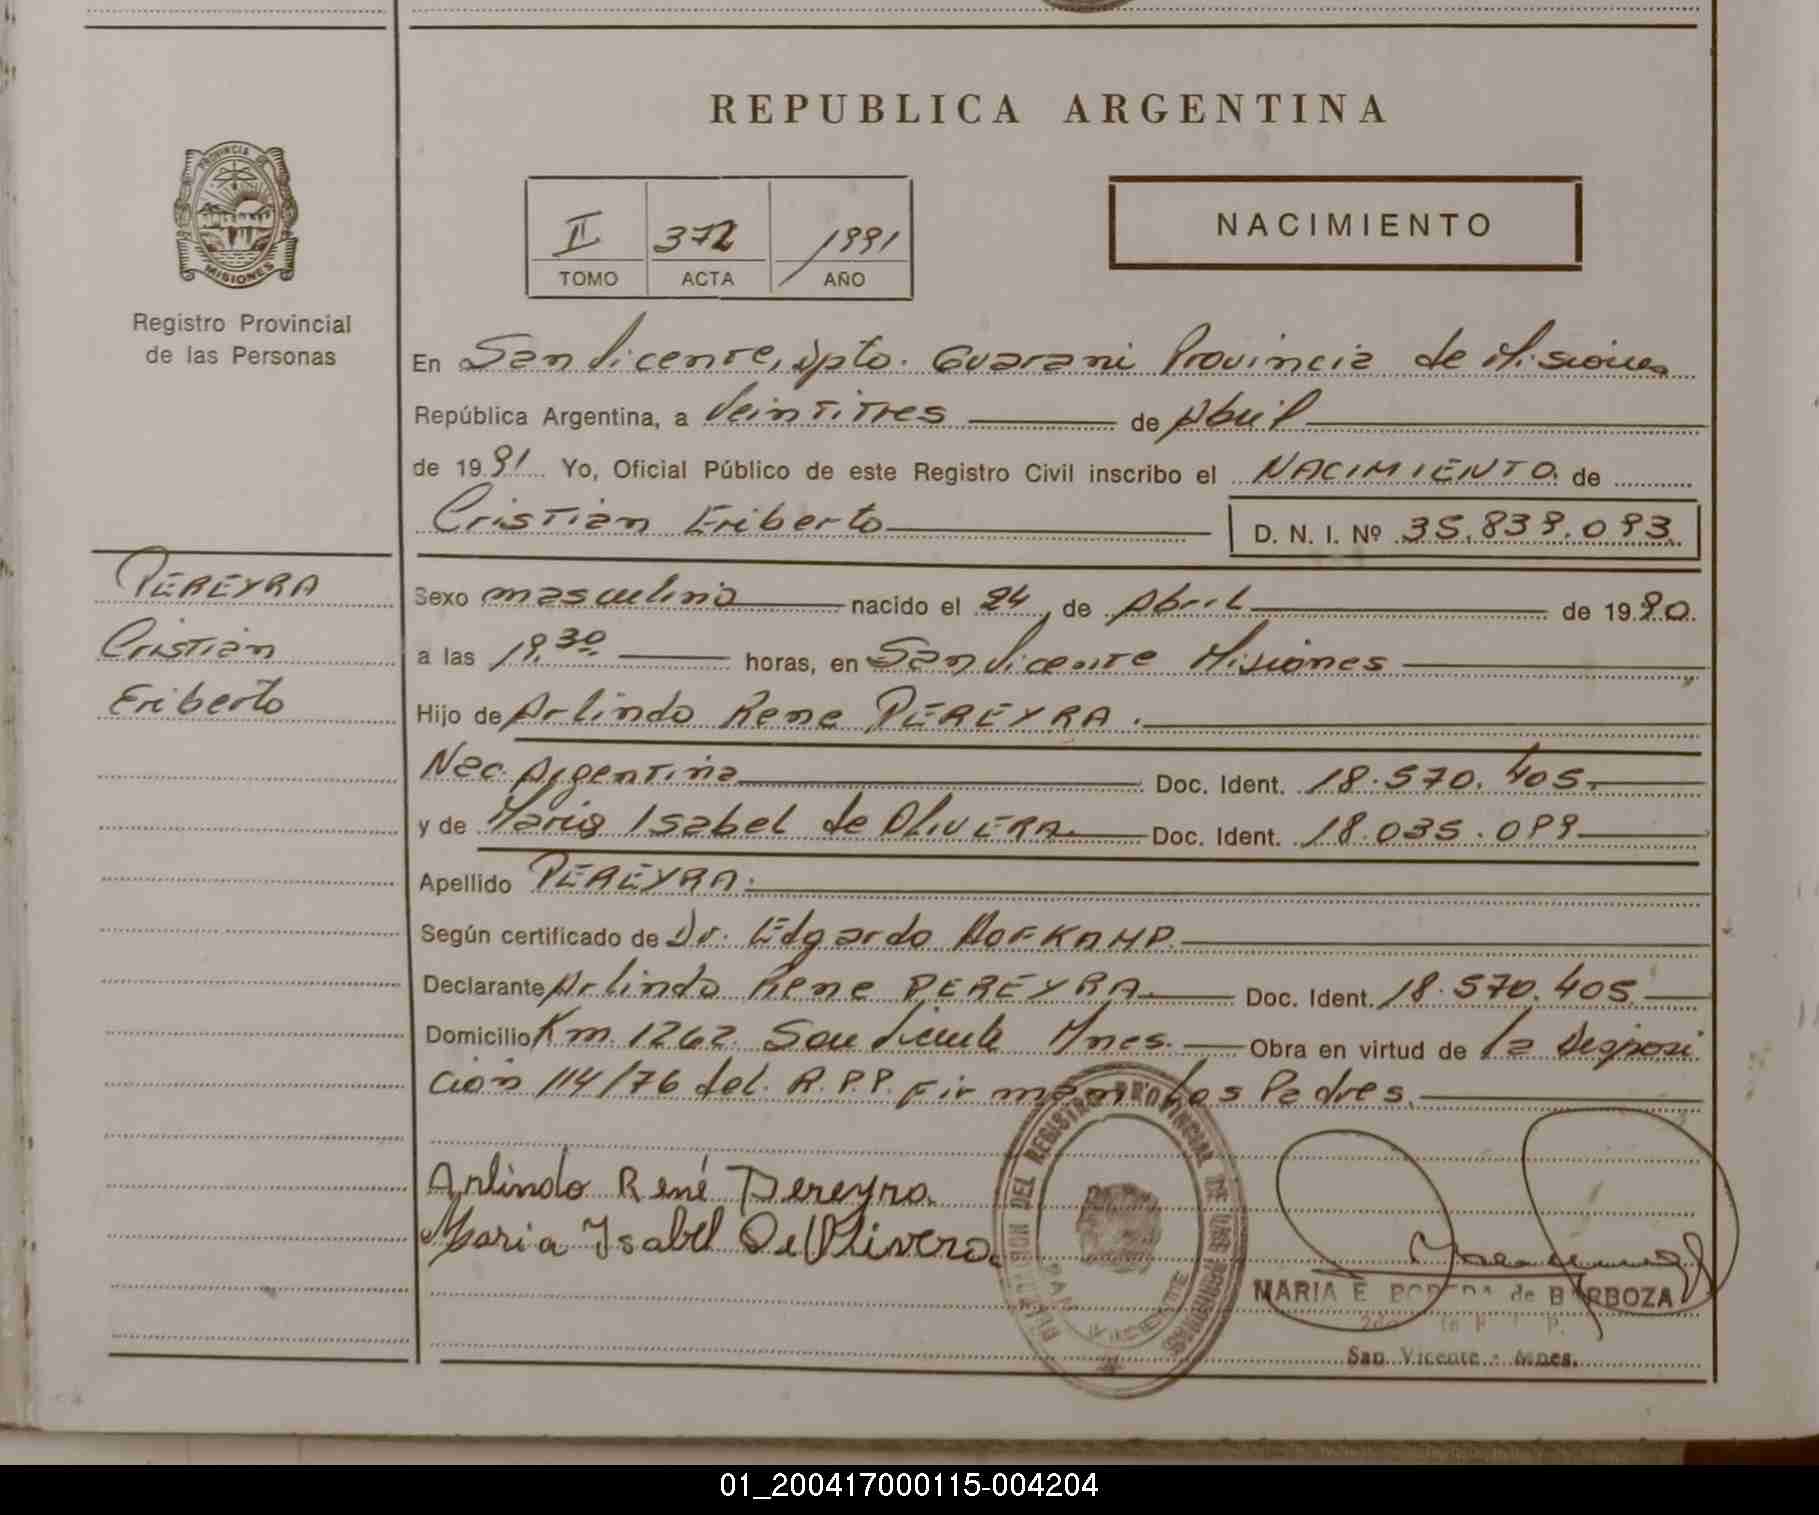 REPUBLICA ARGENTINA
PROVINCIA DE
MISIONES
Registro Provincial
de las Personas
II 372 1991
TOMO ACTA AÑO
NACIMIENTO
En San Vicente, Dpto. Guarani Provincia de Misiones
República Argentina, a Veintitres de Abril
de 1991 Yo, Oficial Público de este Registro Civil inscribo el NACIMIENTO de
Cristian Eriberto D. N. I. Nº 35.839.093
PEREYRA
Cristian
Eriberto
Sexo masculino nacido el 24, de Abril de 1990.
a las 19,30 horas, en San Vicente Misiones
Hijo de Arlindo Rene PEREYRA.
Nac. Argentina Doc. Ident. 18.570.405.
y de Maria Isabel de OLIVERA. Doc. Ident. 18.035.099
Apellido PEREYRA.
Según certificado de Dr. Edgardo HOFKAMP.
Declarante Arlindo Rene PEREYRA. Doc. Ident. 18.570.405
Domicilio Km. 1262. San Vicente Mnes. Obra en virtud de la Disposi
ción 114/76 del. R.P.P. Firman Los Padres.
Arlindo René Pereyra.
Maria Isabel De Olivera.
DEL REGISTRO PROVINCIAL DE LAS PERSONAS
SAN VICENTE
MARIA E. de BARBOZA
San Vicente - Mnes.
01_200417000115-004204